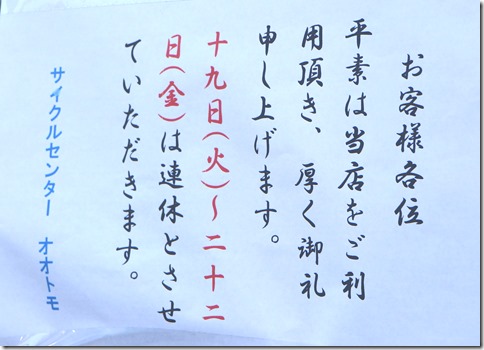 お客様各位
平素は当店をご利
用頂き、厚く御礼
申し上げます。
十九日(火)～二十二
日(金)は連休とさせ
ていただきます。
サイクルセンター オオトモ